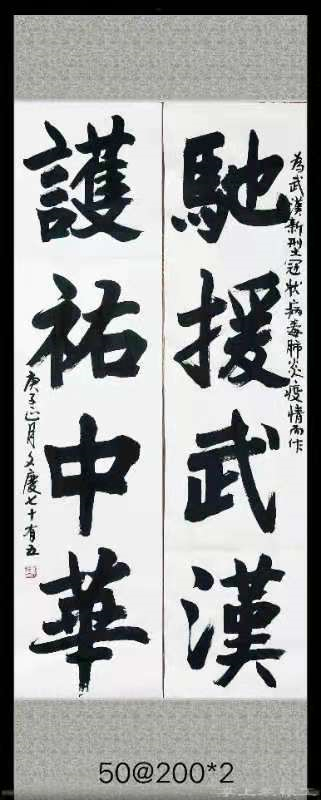 為武漢新型冠狀病毒肺炎疫情而作
馳援武漢
護祐中華
庚子正月文慶七十有五
50@200*2